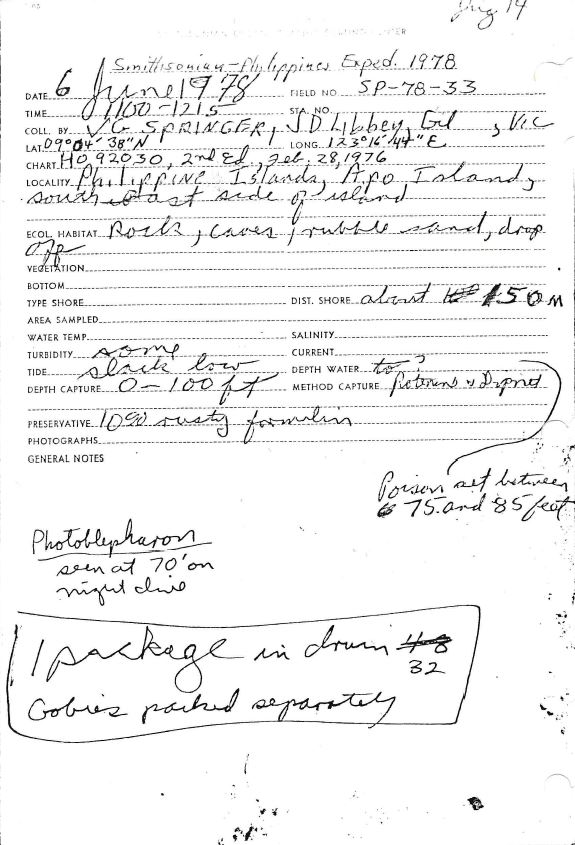 Aug 14
Smithsonian-Philippines Exped. 1978
DATE 6 June 1978 FIELD NO. SP-78-33
TIME 1100-1215 STA. NO.
COLL. BY V.G. SPRINGER, J D Libbey, Gil, Vic
LAT. 09°04'38"N LONG. 123°16'44"E
CHART HO 92030, 2nd Ed, Feb. 28, 1976
LOCALITY Philippine Islands, Apo Island,
south east side of island
ECOL. HABITAT Rock, caves, rubble sand, drop
off
VEGETATION
BOTTOM
TYPE SHORE DIST. SHORE about 150 M
AREA SAMPLED
WATER TEMP. SALINITY
TURBIDITY some CURRENT
TIDE slack low DEPTH WATER to ?
DEPTH CAPTURE 0-100 ft METHOD CAPTURE Rotenone & Dipnet
PRESERVATIVE 10% rusty formalin
PHOTOGRAPHS
GENERAL NOTES
Poison set between
75 and 85 feet
Photoblepharon
seen at 70' on
night dive
1 package in drum 48
32
Gobies packed separately